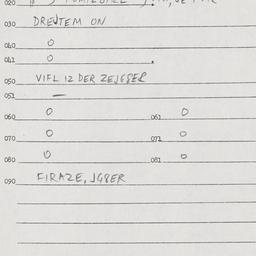 020
030 DREJTEM ON
040 0
041 0
050 VIFL 12 DER ZEJGSER
051 —
060 0 061 0
070 0 072 0
080 0 081 0
090 FIRAZE, JG8ER